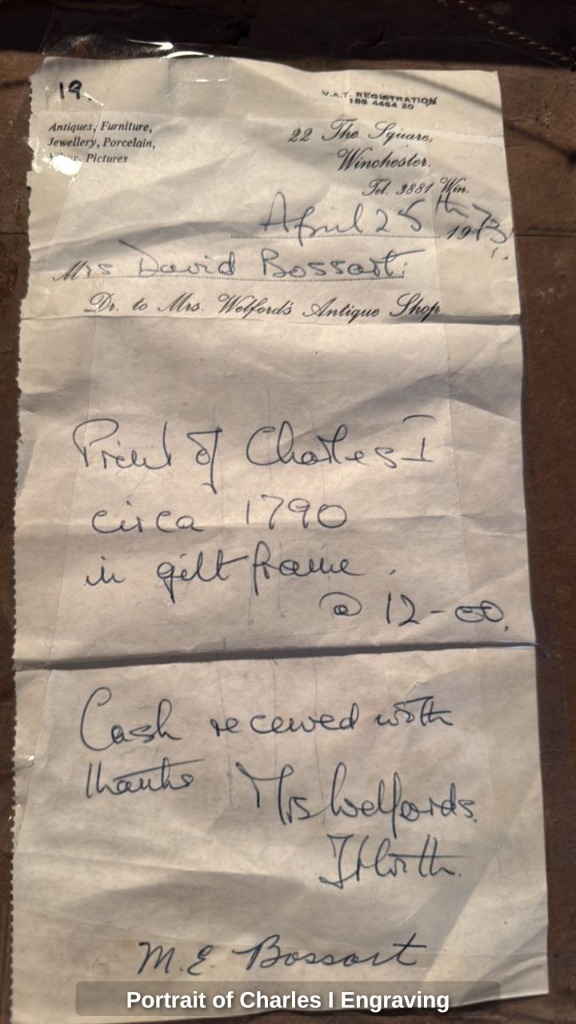 19.
V.A.T. REGISTRATION
188 4464 20
Antiques, Furniture,
Jewellery, Porcelain,
Silver, Pictures
22 The Square,
Winchester.
Tel. 3881 Win.
April 25th 1973.
Mrs David Bossart.
Dr. to Mrs. Welford's Antique Shop
Print of Charles I
circa 1790
in gilt frame.
@ 12-00.
Cash received with
thanks Mrs Welfords.
M.E. Bossart
Portrait of Charles I Engraving